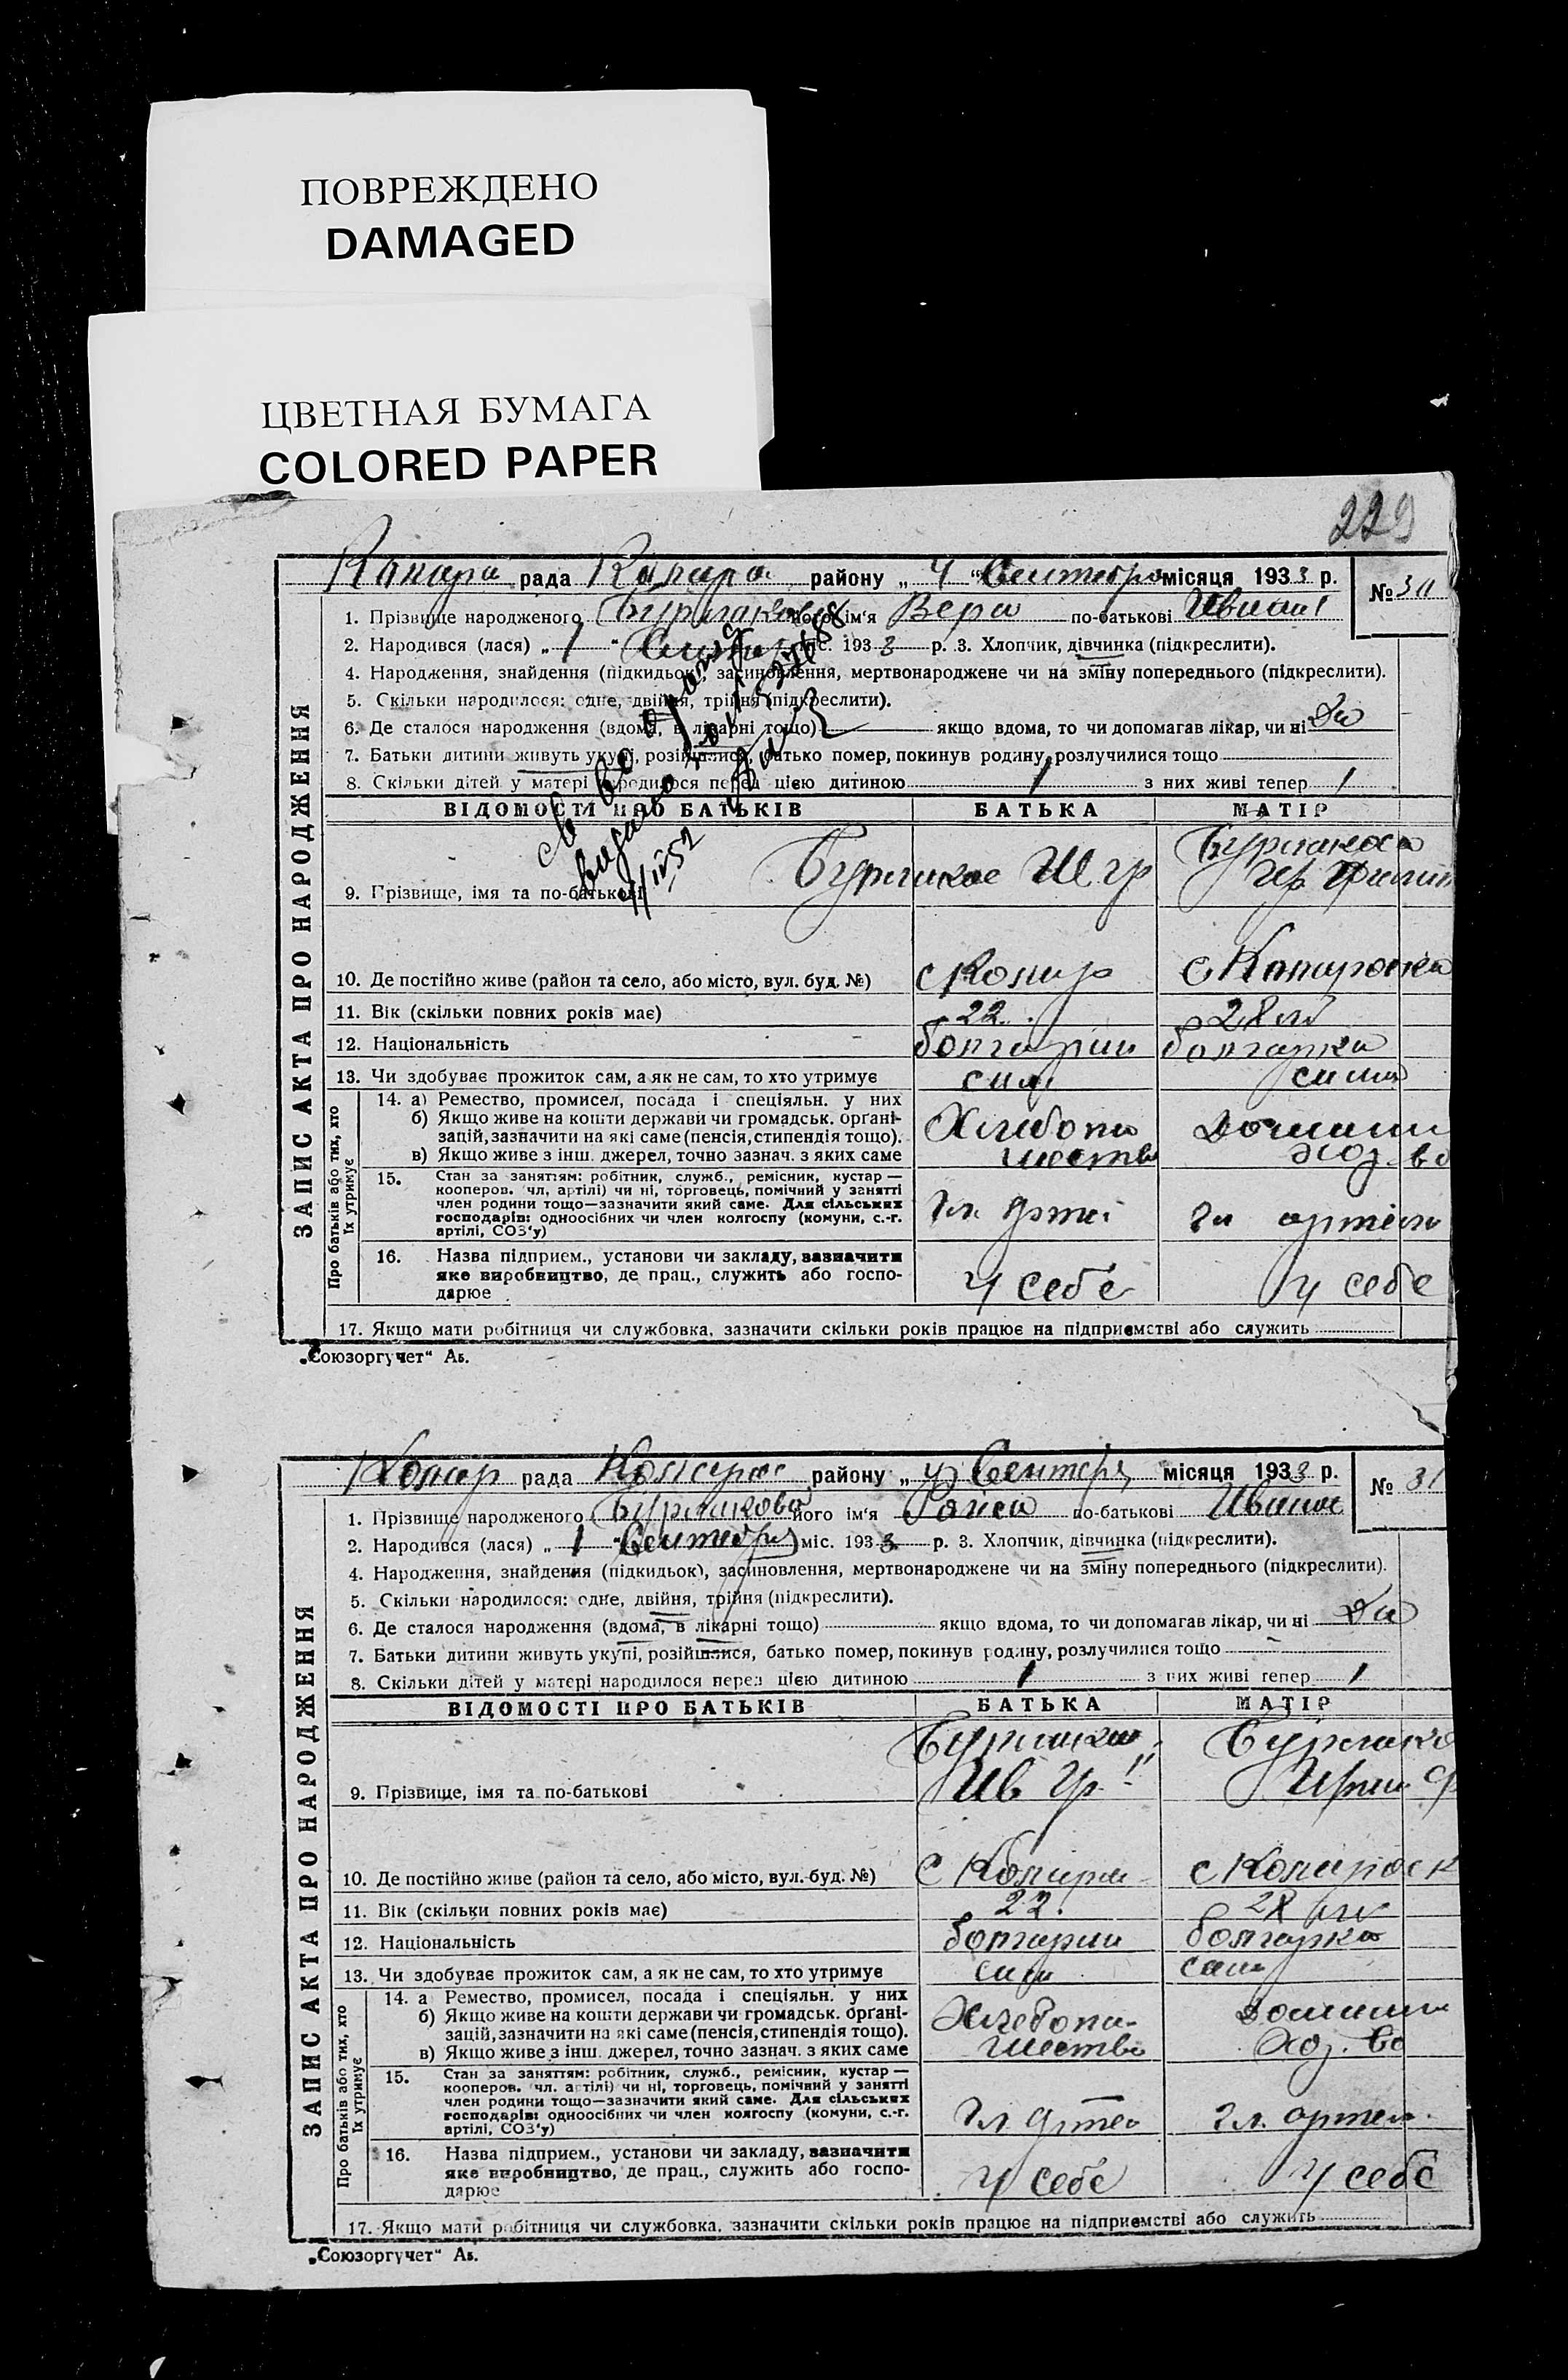 ПОВРЕЖДЕНО
DAMAGED
ЦВЕТНАЯ БУМАГА
COLORED PAPER
229
рада району „ 4 “ Сентебра місяця 1933 р. № 30
1. Прізвище народженого його ім'я Вера по-батькові Иван
2. Народився (лася) „ 1 “ міс. 1933 р. 3. Хлопчик, дівчинка (підкреслити).
4. Народження, знайдення (підкидьок), засиновлення, мертвонароджене чи на зміну попереднього (підкреслити).
5. Скільки народилося: одне, двійня, трійня (підкреслити).
6. Де сталося народження (вдома, в лікарні тощо) якщо вдома, то чи допомагав лікар, чи ні
7. Батьки дитини живуть укупі, розійшлися, батько помер, покинув родину, розлучилися тощо
8. Скільки дітей у матері народилося перед цією дитиною 1 з них живі тепер 1
ЗАПИС АКТА ПРО НАРОДЖЕННЯ
ВІДОМОСТІ ПРО БАТЬКІВ БАТЬКА МАТІР
9. Прізвище, імя та по-батькові
10. Де постійно живе (район та село, або місто, вул. буд. №)
11. Вік (скільки повних років має) 22 28
12. Національність болгарин болгарка
13. Чи здобуває прожиток сам, а як не сам, то хто утримує сам сама
Про батьків або тих, хто їх утримує
14. а) Ремество, промисел, посада і спеціяльн. у них
б) Якщо живе на кошти держави чи громадськ. орґані-
зацій, зазначити на які саме (пенсія, стипендія тощо). Хлебопа
в) Якщо живе з інш. джерел, точно зазнач. з яких саме шество хоз-во
15. Стан за заняттям: робітник, служб., ремісник, кустар —
кооперов. чл. артілі) чи ні, торговець, помічний у занятті
член родини тощо—зазначити який саме. Для сільських
господарів: одноосібних чи член колгоспу (комуни, с.-г.
артілі, СОЗ'у)
16. Назва підприєм., установи чи закладу, зазначити
яке виробництво, де прац., служить або госпо-
дарює у себе у себе
17. Якщо мати робітниця чи службовка, зазначити скільки років працює на підприємстві або служить
„Союзоргучет“ Аб.
рада району „ 4 “ місяця 1933 р. № 31
1. Прізвище народженого Бурлакова його ім'я Раиса по-батькові
2. Народився (лася) „ 1 “ Сентебря міс. 1933 р. 3. Хлопчик, дівчинка (підкреслити).
4. Народження, знайдення (підкидьок), засиновлення, мертвонароджене чи на зміну попереднього (підкреслити).
5. Скільки народилося: одне, двійня, трійня (підкреслити).
6. Де сталося народження (вдома, в лікарні тощо) якщо вдома, то чи допомагав лікар, чи ні
7. Батьки дитини живуть укупі, розійшлися, батько помер, покинув родину, розлучилися тощо
8. Скільки дітей у матері народилося перед цією дитиною 1 з них живі тепер 1
ЗАПИС АКТА ПРО НАРОДЖЕННЯ
ВІДОМОСТІ ПРО БАТЬКІВ БАТЬКА МАТІР
9. Прізвище, імя та по-батькові Ив Гр.
10. Де постійно живе (район та село, або місто, вул. буд. №)
11. Вік (скільки повних років має) 22. 28
12. Національність болгарин болгарка
13. Чи здобуває прожиток сам, а як не сам, то хто утримує сам сама
Про батьків або тих, хто їх утримує
14. а Ремество, промисел, посада і спеціяльн. у них
б) Якщо живе на кошти держави чи громадськ. орґані-
зацій, зазначити на які саме (пенсія, стипендія тощо). Хлебопа-
в) Якщо живе з інш. джерел, точно зазнач. з яких саме шество хоз-во
15. Стан за заняттям: робітник, служб., ремісник, кустар —
кооперов. чл. артілі) чи ні, торговець, помічний у занятті
член родини тощо—зазначити який саме. Для сільських
господарів: одноосібних чи член колгоспу (комуни, с.-г.
артілі, СОЗ'у)
16. Назва підприєм., установи чи закладу, зазначити
яке виробництво, де прац., служить або госпо-
дарює у себе у себе
17. Якщо мати робітниця чи службовка, зазначити скільки років працює на підприємстві або служить
„Союзоргучет“ Аб.